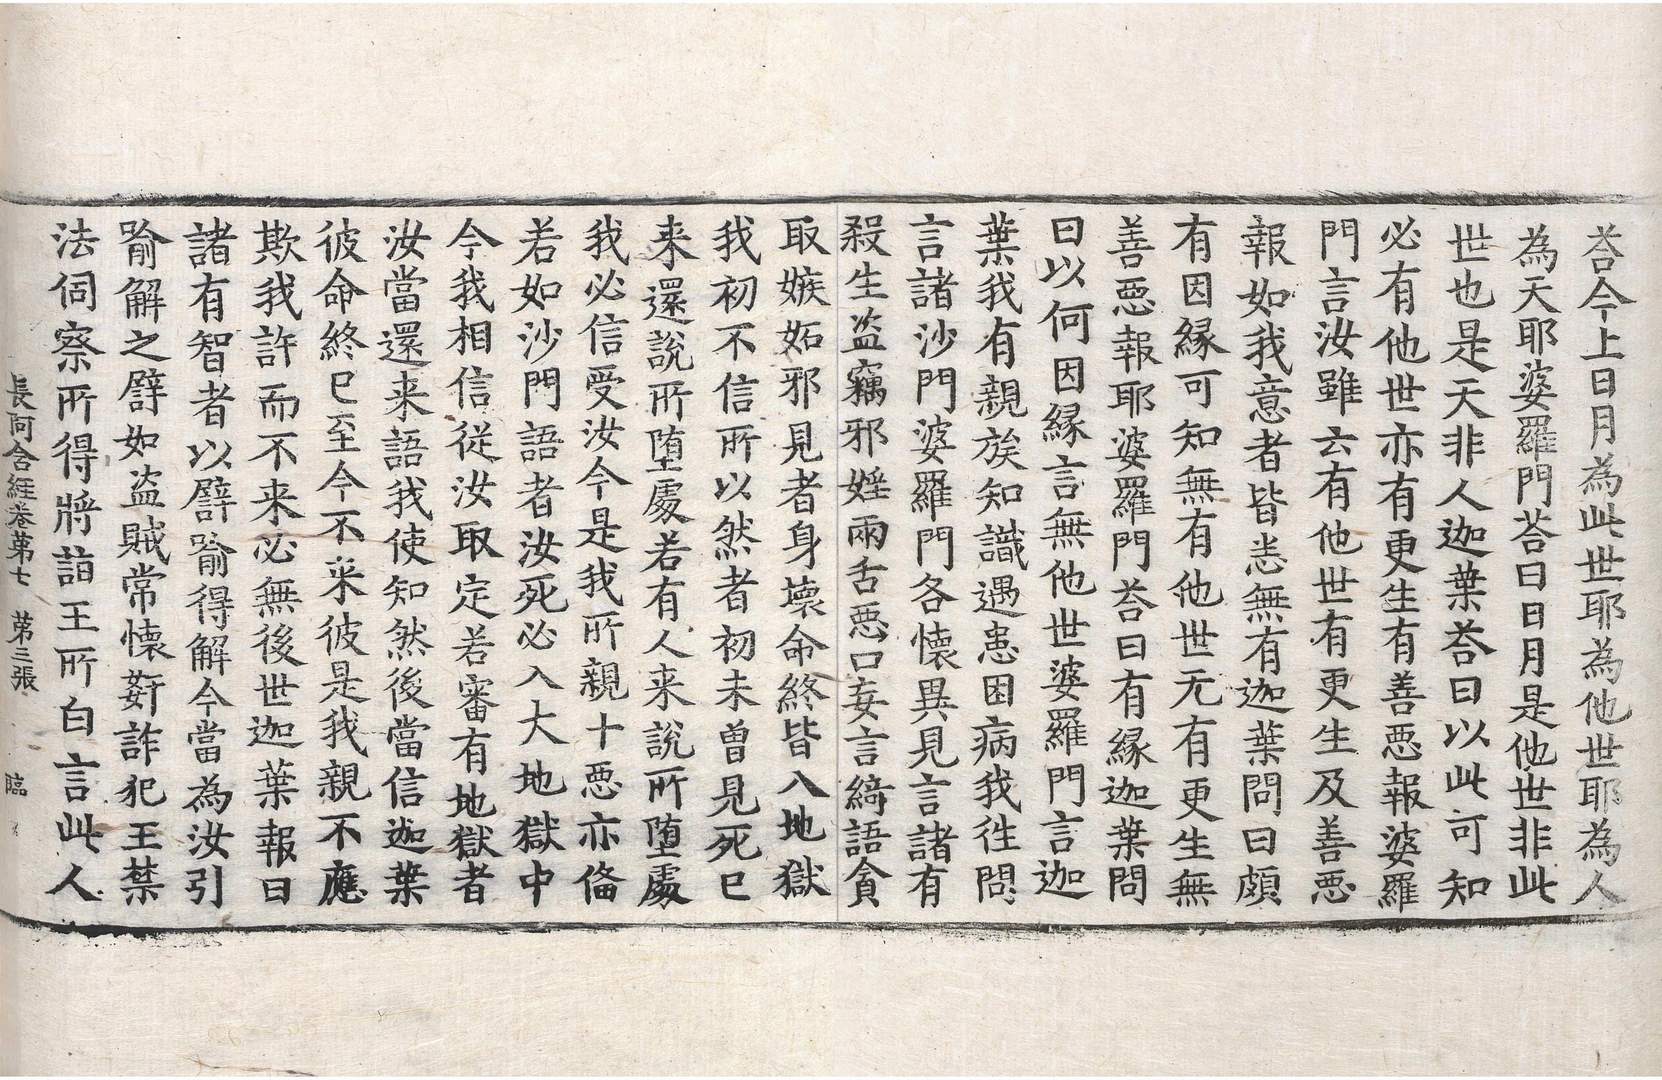 荅今上日月為此世耶為他世耶為人
為天耶婆羅門荅曰日月是他世非此
世也是天非人迦葉荅曰以此可知
必有他世亦有更生有善惡報婆羅
門言汝雖云有他世有更生及善惡
報如我意者皆悉無有迦葉問曰頗
有因緣可知無有他世无有更生無
善惡報耶婆羅門荅曰有緣迦葉問
曰以何因緣言無他世婆羅門言迦
葉我有親族知識遇患困病我往問
言諸沙門婆羅門各懷異見言諸有
殺生盗竊邪婬兩舌惡口妄言綺語貪
取嫉妬邪見者身壞命終皆入地獄
我初不信所以然者初未曾見死已
来還說所墮處若有人来說所墮處
我必信受汝今是我所親十惡亦俻
若如沙門語者汝死必入大地獄中
今我相信従汝取定若審有地獄者
汝當還来語我使知然後當信迦葉
彼命終已至今不来彼是我親不應
欺我許而不来必無後世迦葉報曰
諸有智者以譬喻得解今當為汝引
喻解之譬如盗賊常懷姧詐犯王禁
法伺察所得將詣王所白言此人
長阿含經卷第七　第三張　臨